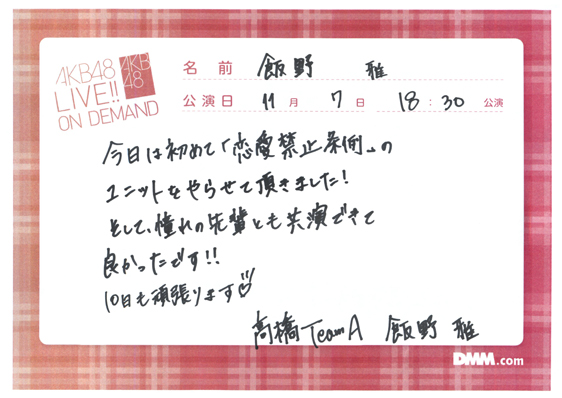 AKB48
LIVE!!
ON DEMAND
AKB
48
名前 飯野 雅
公演日 11月 7日 18:30 公演
今日は初めて「恋愛禁止条例」の
ユニットをやらせて頂きました!
そして、憧れの先輩とも共演できて
良かったです!!
10日も頑張ります♡
高橋TeamA 飯野 雅
DMM.com